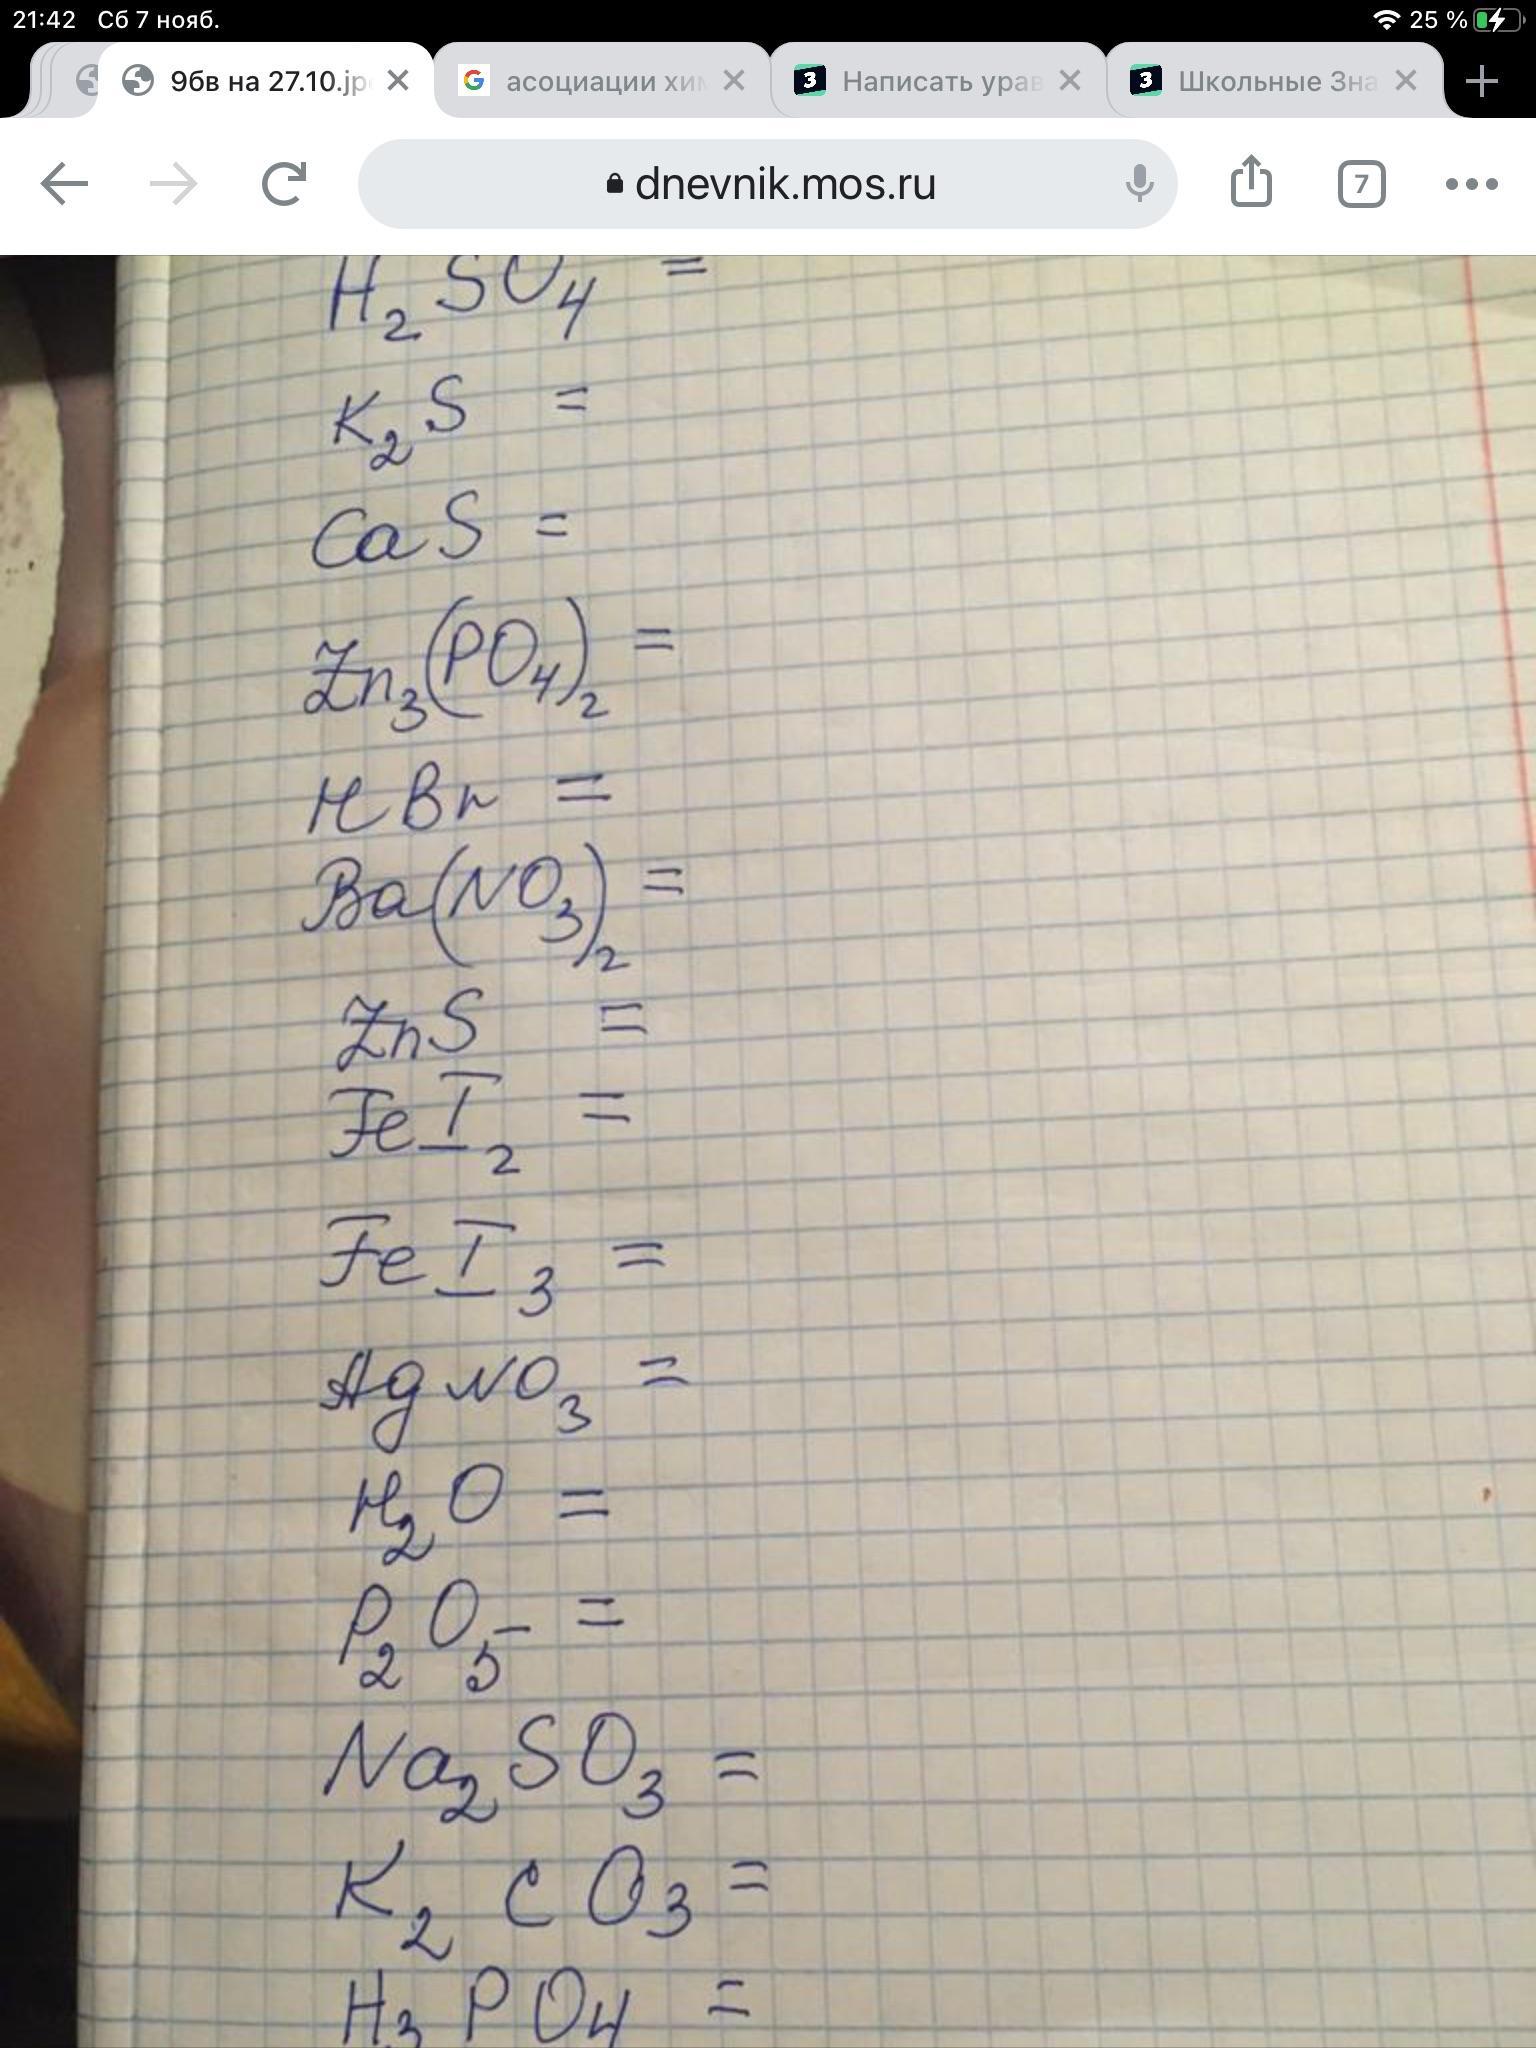 21:42 Сб 7 нояб. 25 %
9бв на 27.10.jp асоциации хи Написать урав Школьные Зна
dnevnik.mos.ru 7
H₂SO₄ =
K₂S =
CaS =
Zn₃(PO₄)₂ =
HBr =
Ba(NO₃)₂ =
ZnS =
FeI₂ =
FeI₃ =
AgNO₃ =
H₂O =
P₂O₅ =
Na₂SO₃ =
K₂CO₃ =
H₃PO₄ =